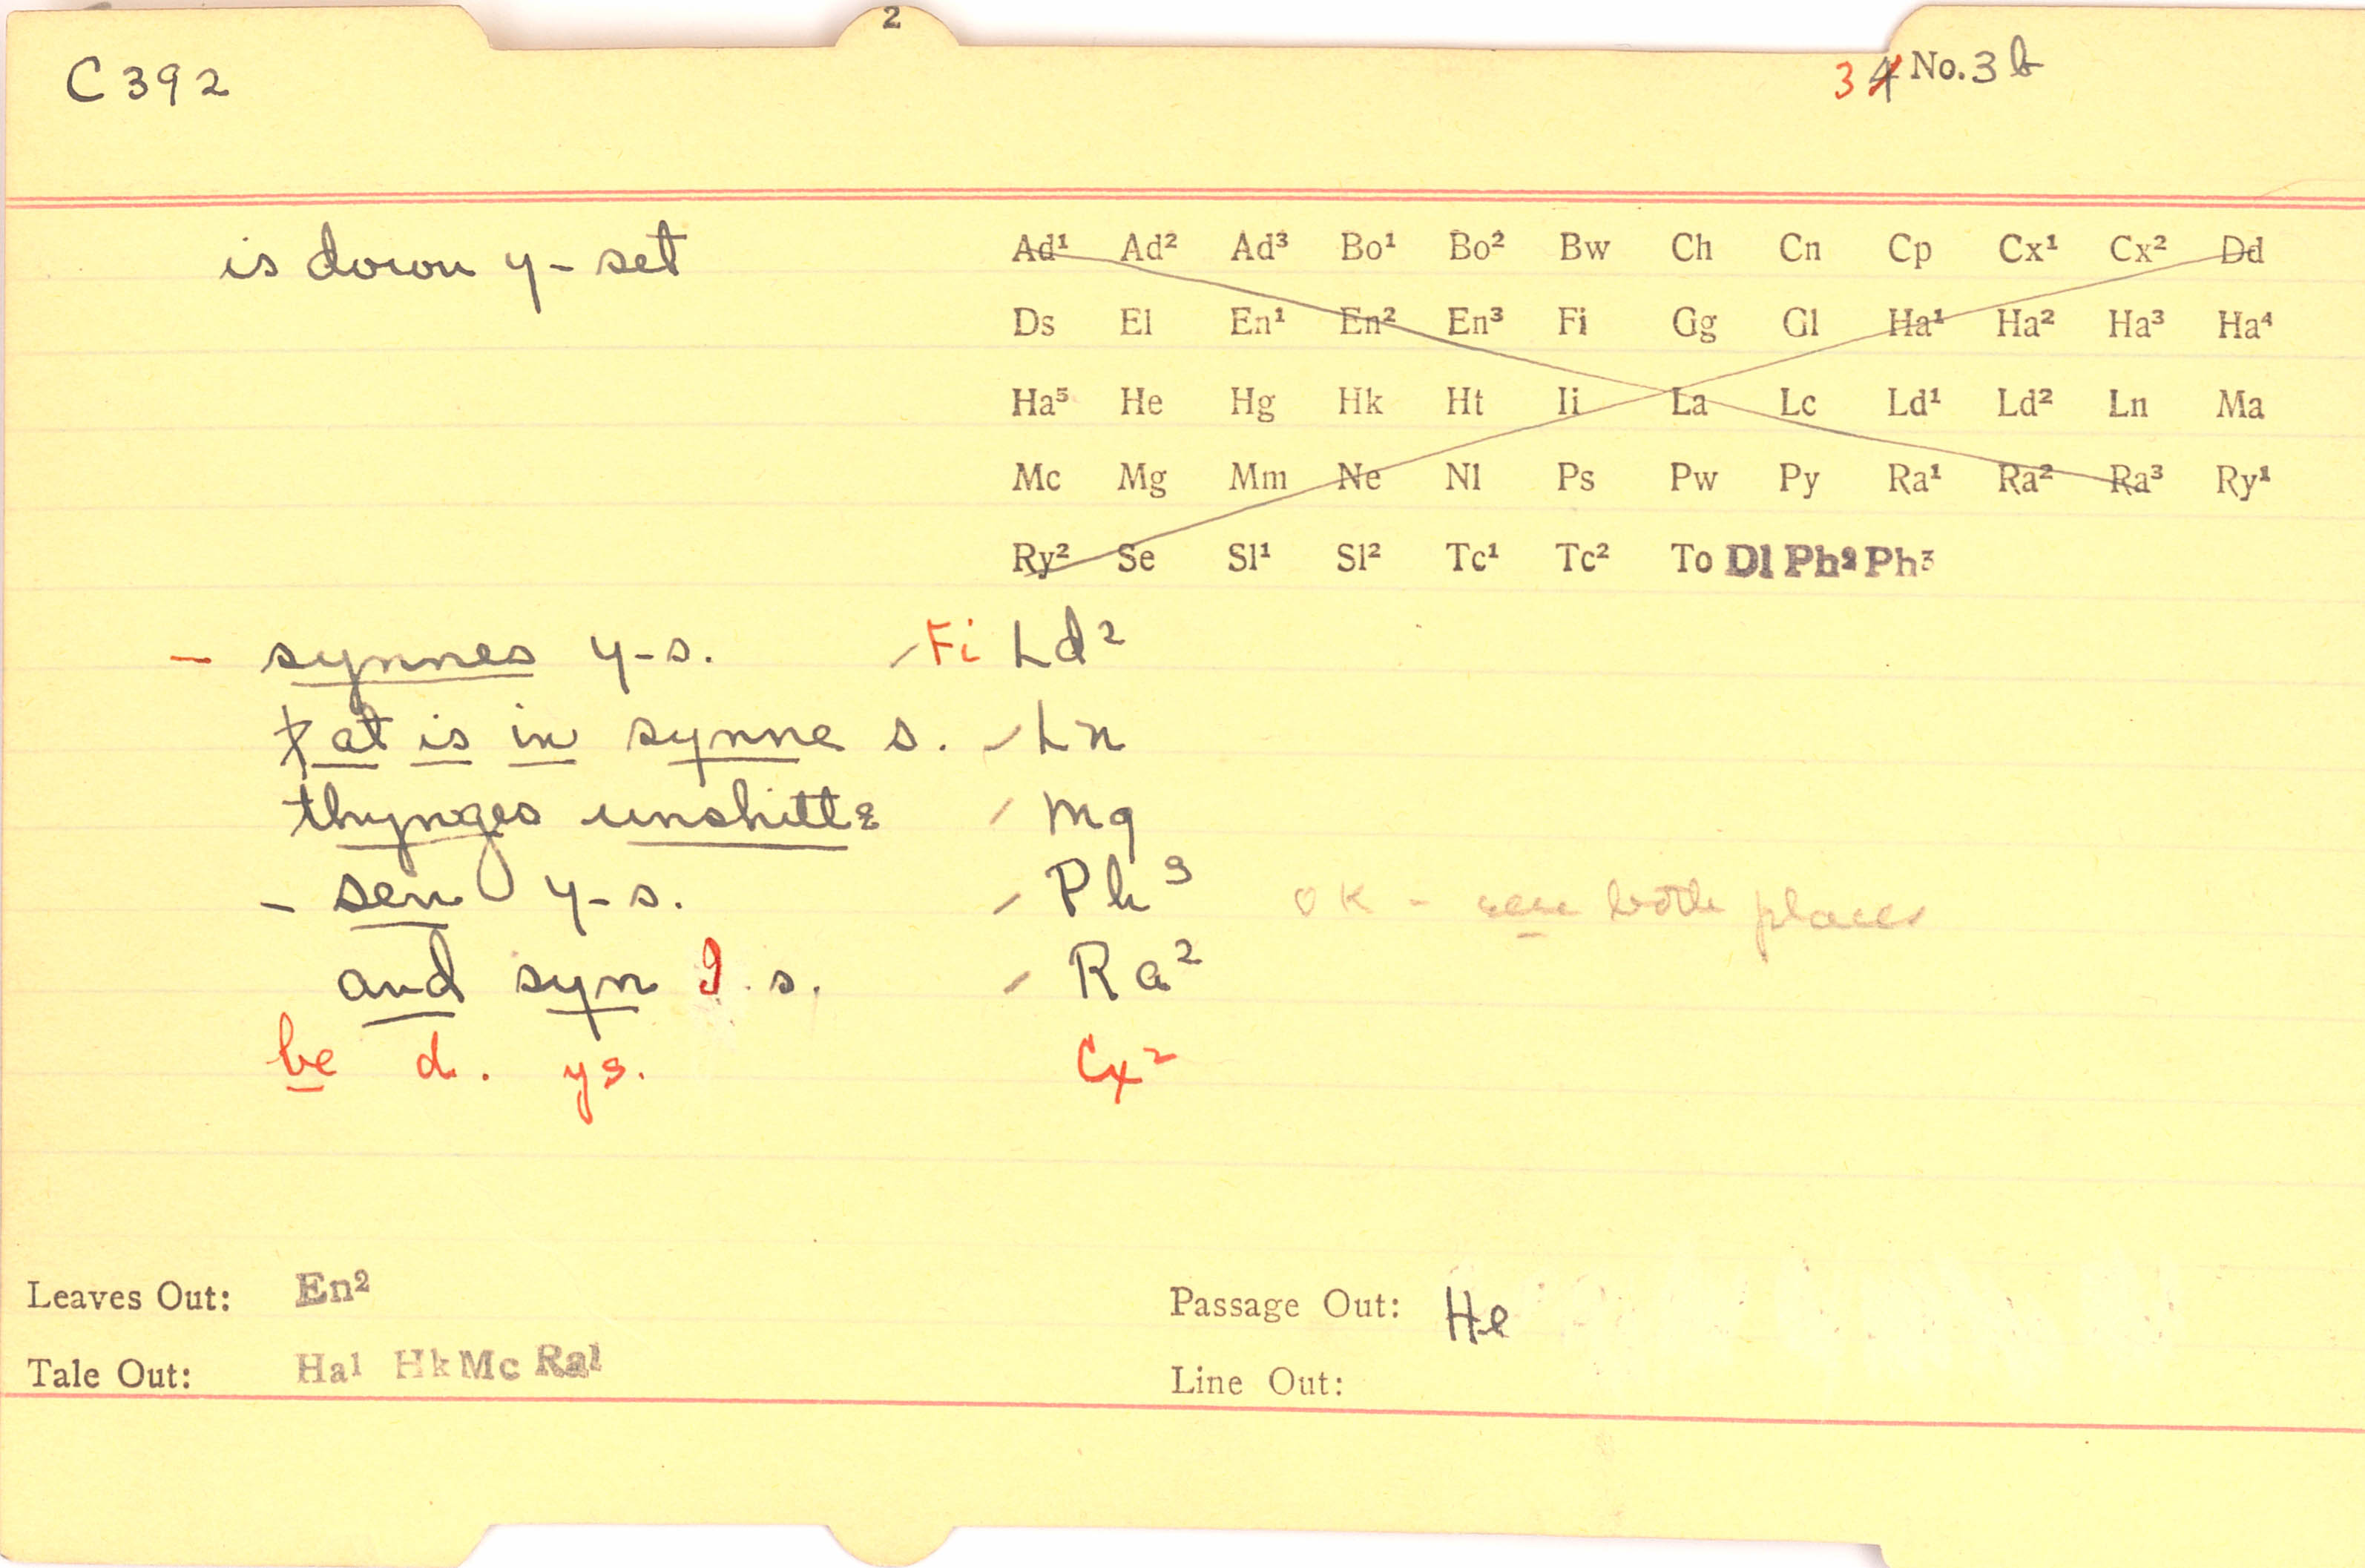 2
C 392
3 4 No. 3 b
is down y-set
Ad¹ Ad² Ad³ Bo¹ Bo² Bw Ch Cn Cp Cx¹ Cx² Dd
Ds El En¹ En² En³ Fi Gg Gl Ha¹ Ha² Ha³ Ha⁴
Ha⁵ He Hg Hk Ht Ii La Lc Ld¹ Ld² Ln Ma
Mc Mg Mm Ne Nl Ps Pw Py Ra¹ Ra² Ra³ Ry¹
Ry² Se Sl¹ Sl² Tc¹ Tc² To Dl Ph² Ph³
– synnes y-s. Fi Ld²
þat is in synne s. Ln
thynges unshitte Mg
– sen y-s. Ph³ OK - sene both places
and syn I. s. Ra²
be d. ys. Cx²
Leaves Out: En²
Passage Out: He
Tale Out: Ha¹ Hk Mc Ra¹
Line Out: